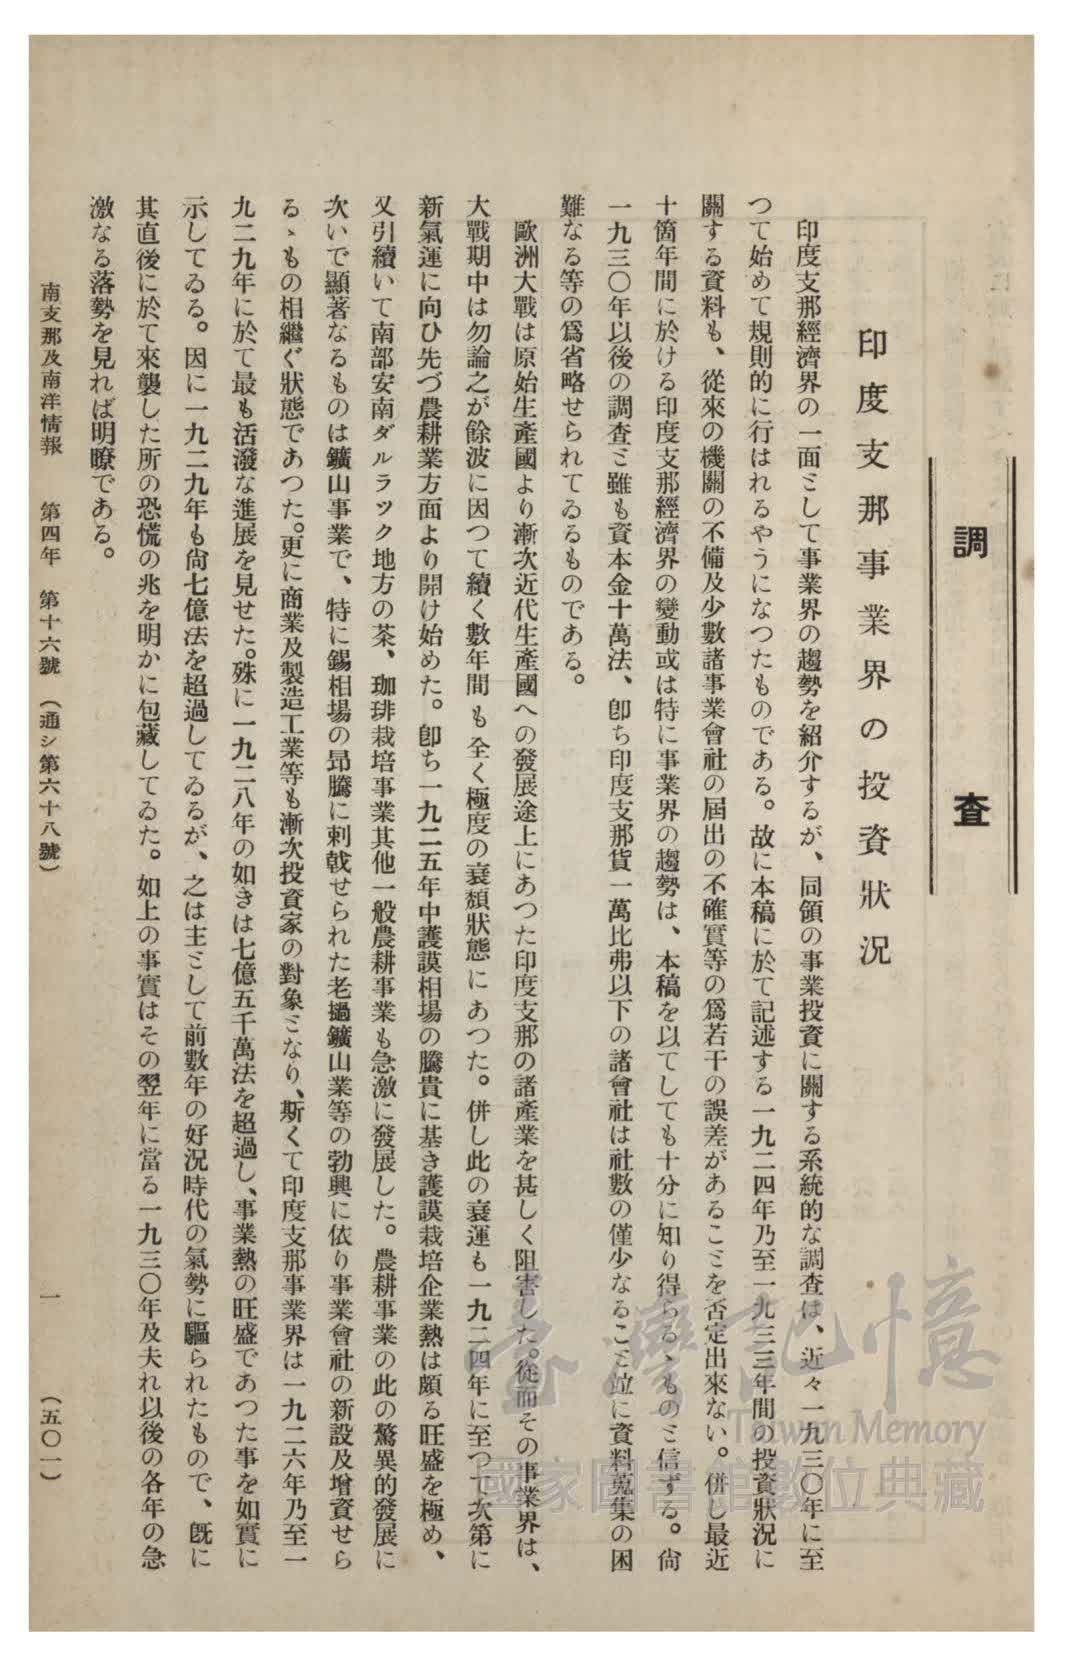 調查
印度支那事業界の投資狀況
印度支那經濟界の一面として事業界の趨勢を紹介するが、同領の事業投資に關する系統的な調查は、近々一九三〇年に至
つて始めて規則的に行はれるやうになつたものである。故に本稿に於て記述する一九二四年乃至一九三三年間の投資狀況に
關する資料も、從來の機關の不備及少數諸事業會社の屆出の不確實等の爲若干の誤差があることを否定出來ない。併し最近
十箇年間に於ける印度支那經濟界の變動或は特に事業界の趨勢は、本稿を以てしても十分に知り得らるゝものと信ずる。尙
一九三〇年以後の調查と雖も資本金十萬法、卽ち印度支那貨一萬比弗以下の諸會社は社數の僅少なること竝に資料蒐集の困
難なる等の爲省略せられてゐるものである。
歐洲大戰は原始生產國より漸次近代生產國への發展途上にあつた印度支那の諸產業を甚しく阻害した。從而その事業界は、
大戰期中は勿論之が餘波に因つて續く數年間も全く極度の衰頽狀態にあつた。併し此の衰運も一九二四年に至つて次第に
新氣運に向ひ先づ農耕業方面より開け始めた。卽ち一九二五年中護謨相場の騰貴に基き護謨栽培企業熱は頗る旺盛を極め、
又引續いて南部安南ダルラック地方の茶、珈琲栽培事業其他一般農耕事業も急激に發展した。農耕事業の此の驚異的發展に
次いで顯著なるものは鑛山事業で、特に錫相場の昻騰に刺戟せられた老撾鑛山業等の勃興に依り事業會社の新設及增資せら
るゝもの相繼ぐ狀態であつた。更に商業及製造工業等も漸次投資家の對象となり、斯くて印度支那事業界は一九二六年乃至一
九二九年に於て最も活潑な進展を見せた。殊に一九二八年の如きは七億五千萬法を超過し、事業熱の旺盛であつた事を如實に
示してゐる。因に一九二九年も尙七億法を超過してゐるが、之は主として前數年の好況時代の氣勢に驅られたもので、旣に
其直後に於て來襲した所の恐慌の兆を明かに包藏してゐた。如上の事實はその翌年に當る一九三〇年及夫れ以後の各年の急
激なる落勢を見れば明瞭である。
南支那及南洋情報　第四年　第十六號（通シ第六十八號）　一　（五〇一）
臺灣記憶
Taiwan Memory
國家圖書館數位典藏